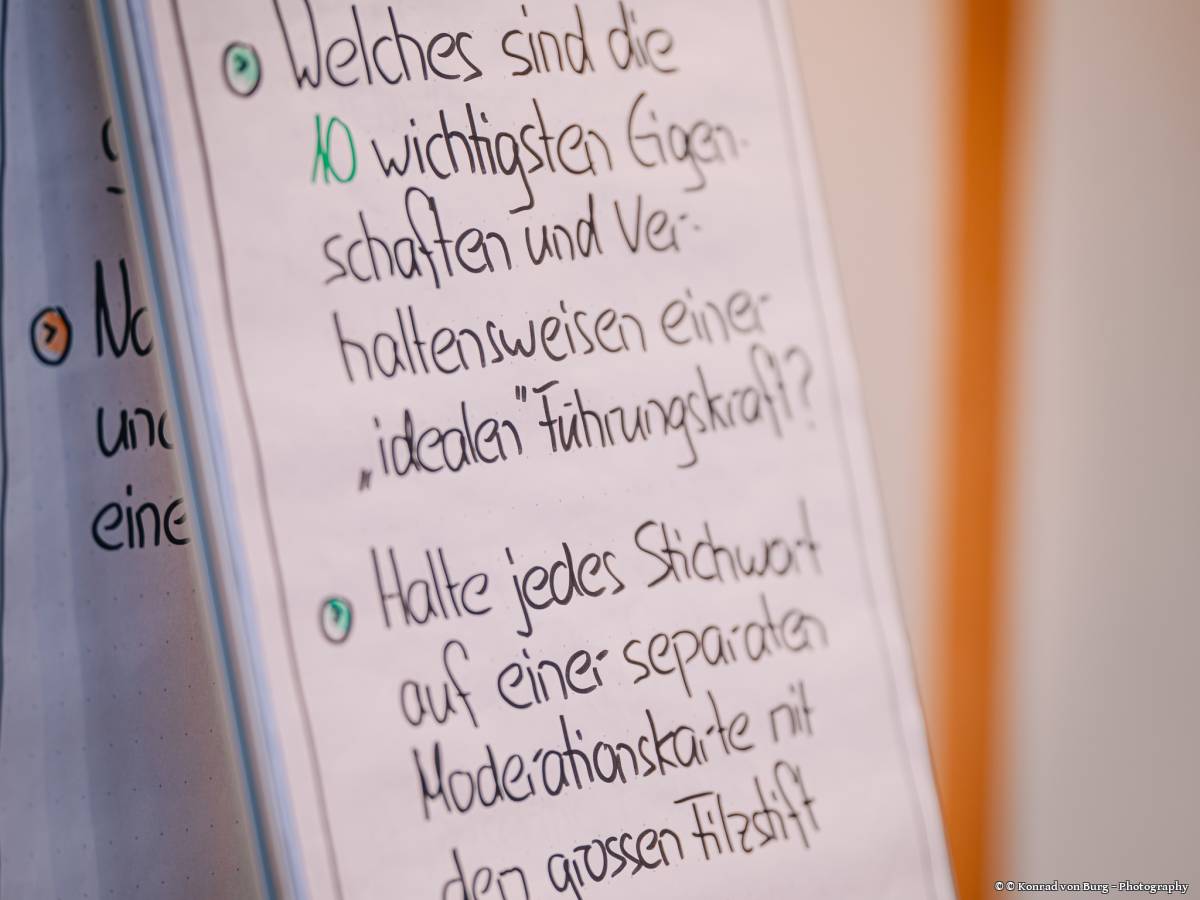 Welches sind die
10 wichtigsten Eigen-
schaften und Ver-
haltensweisen einer
„idealen" Führungskraft?
Halte jedes Stichwort
auf einer separaten
Moderationskarte mit
den grossen Filzstift
eine
© © Konrad von Burg - Photography